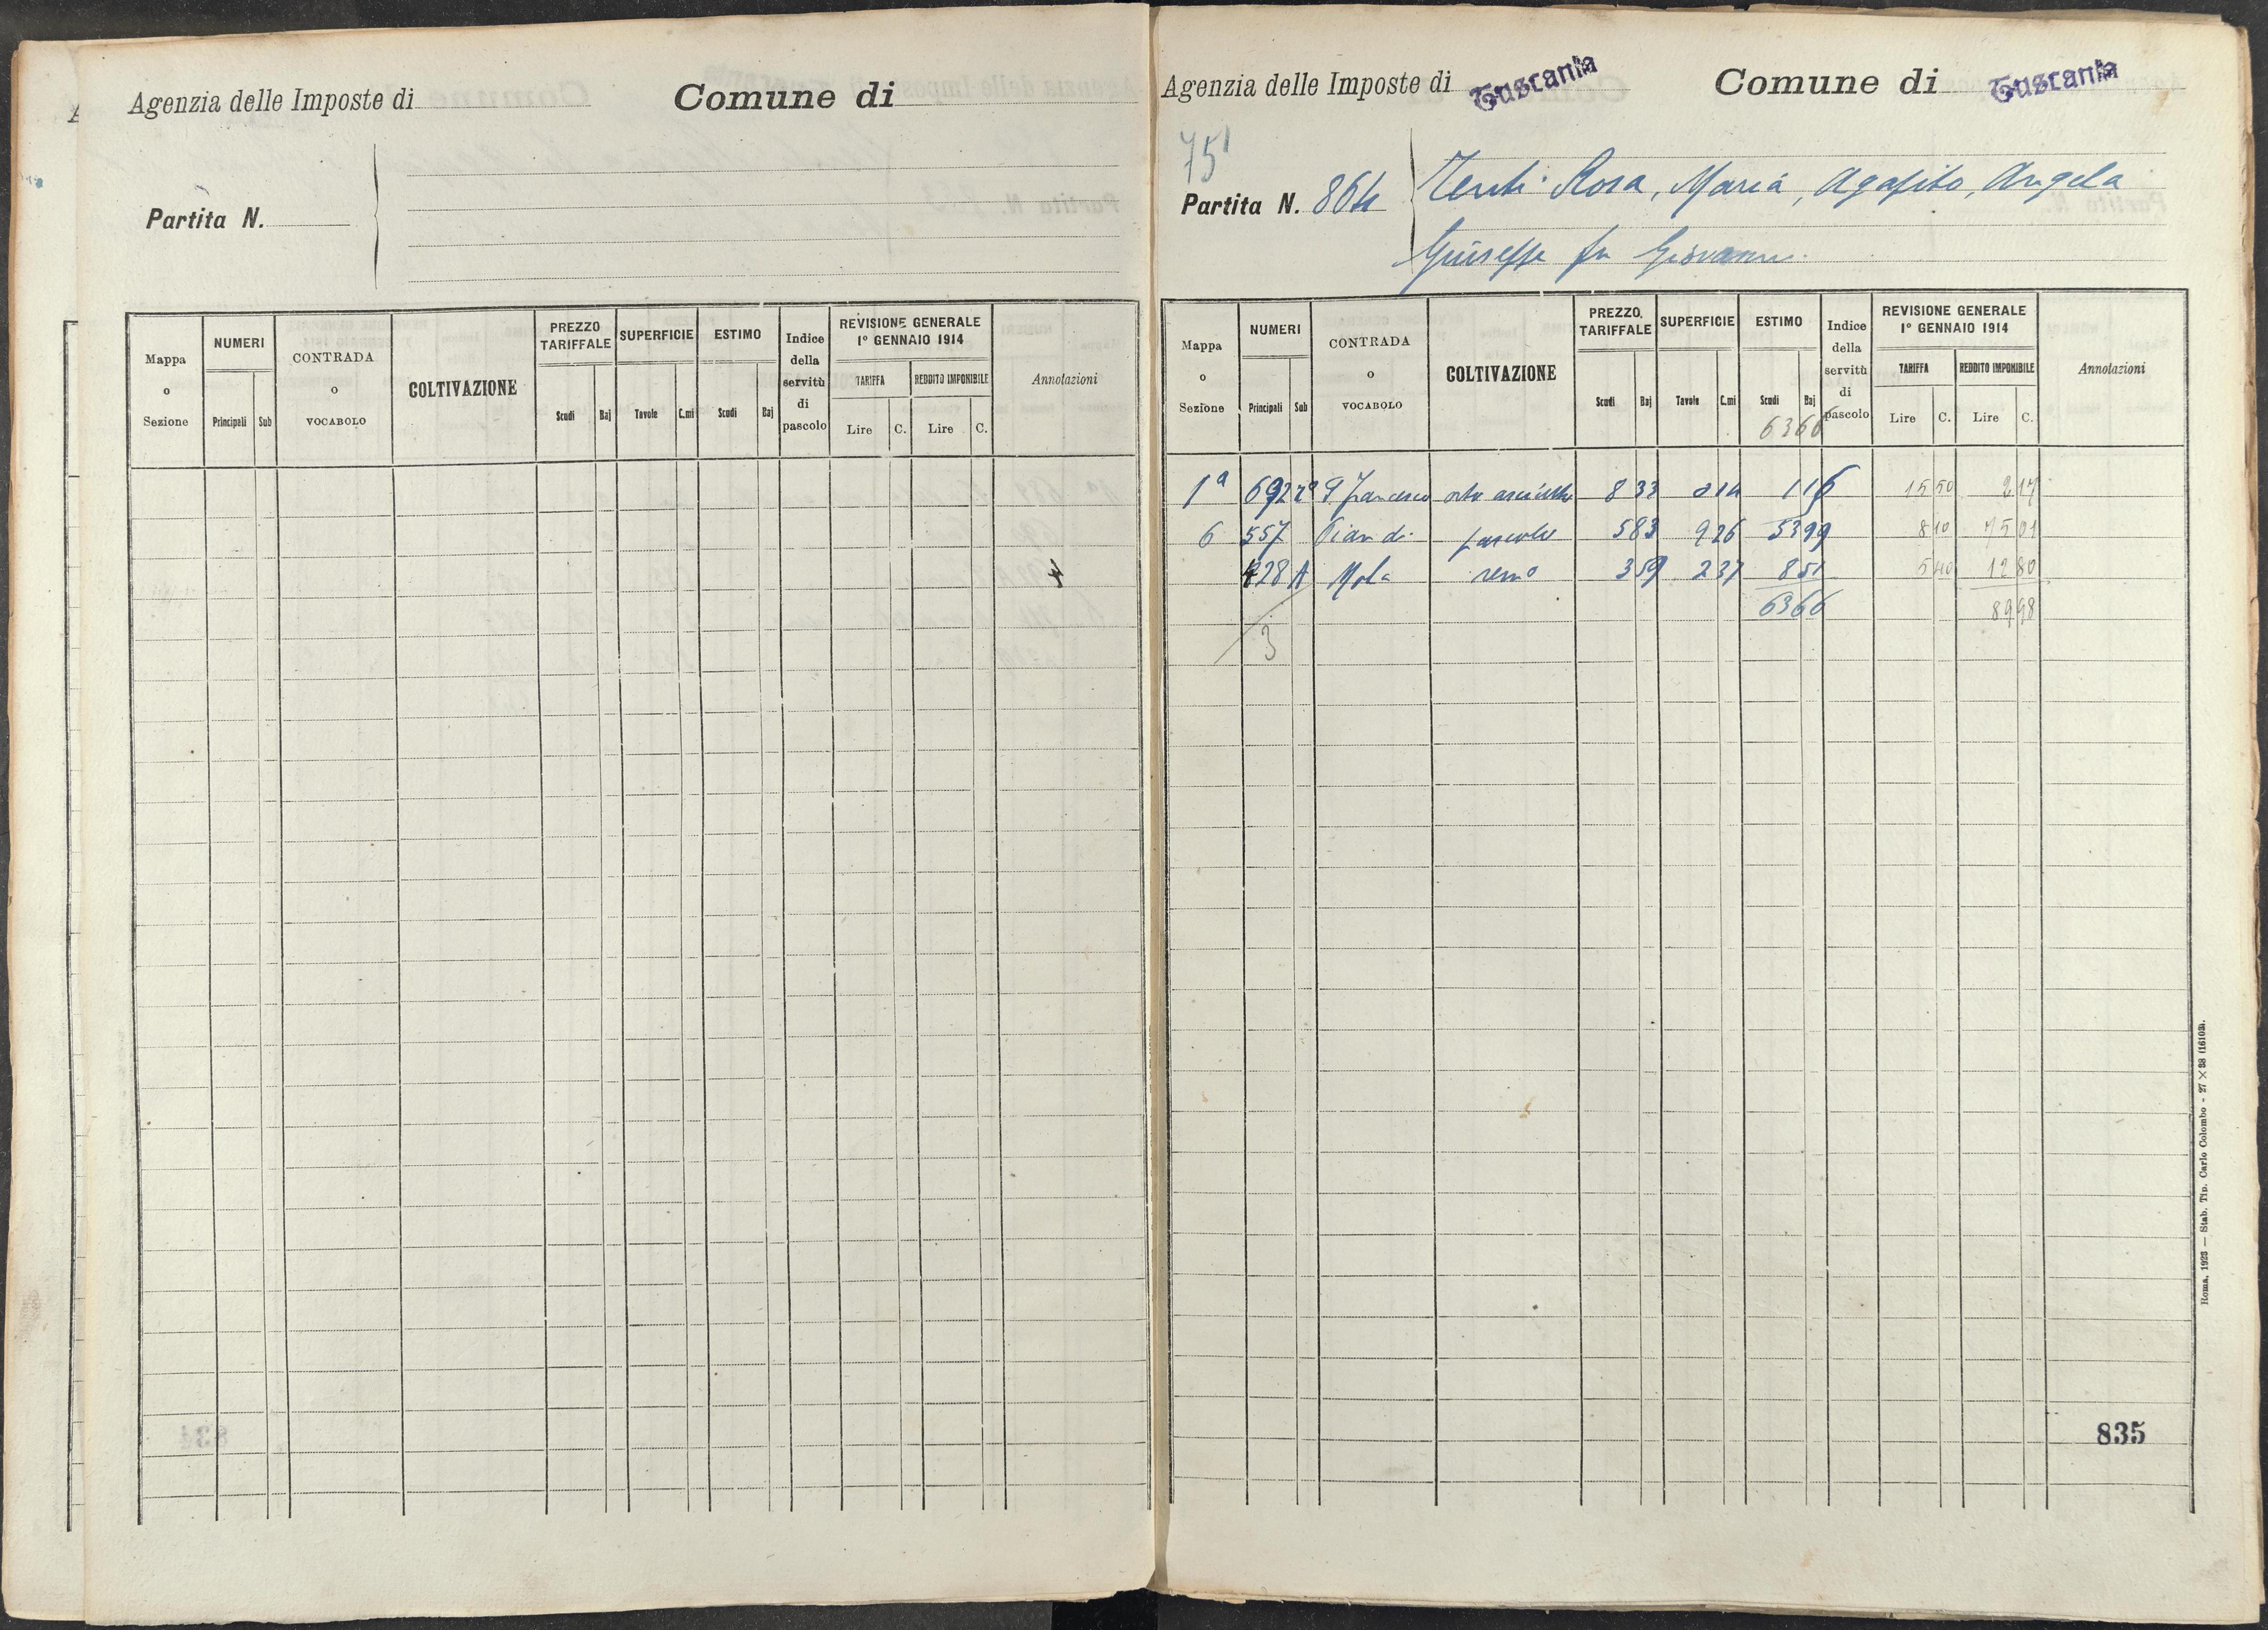 Agenzia delle Imposte di
Comune di
Partita N.
Mappa o Sezione
NUMERI
Principali
Sub
CONTRADA o VOCABOLO
COLTIVAZIONE
PREZZO TARIFFALE
Scudi
Baj
SUPERFICIE
Tavole
C.mi
ESTIMO
Scudi
Baj
Indice della servitù di pascolo
REVISIONE GENERALE
1° GENNAIO 1914
TARIFFA
REDDITO IMPONIBILE
Lire
C.
Lire
C.
Annotazioni
Agenzia delle Imposte di Tuscania
Comune di Tuscania
75
Partita N. 864
Rosa, Maria, Agapito, Angela
Giuseppe fu Giovanni
Mappa o Sezione
NUMERI
Principali
Sub
CONTRADA o VOCABOLO
COLTIVAZIONE
PREZZO TARIFFALE
Scudi
Baj
SUPERFICIE
Tavole
C.mi
ESTIMO
Scudi
Baj
6366
Indice della servitù di pascolo
REVISIONE GENERALE
1° GENNAIO 1914
TARIFFA
REDDITO IMPONIBILE
Lire
C.
Lire
C.
Annotazioni
1ª 692 S Francesco orto asciutto 8 33 0 14 1 16 15 50 2 17
6 557 Pian di pascolo 5 83 9 26 53 99 8 10 75 01
428 A Mola 3 59 2 37 8 51 5 40 12 80
63 66 89 98
3
835
Roma, 1923 — Stab. Tip. Carlo Colombo - 27 × 38 (16103).